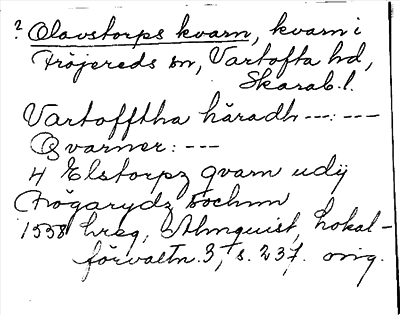 ? Olavstorps kvarn, kvarn i
Fröjereds sn, Vartofta hd,
Skarab. l.
Vartofftha häradh ---: ---
Qvarner: ---
4 Elstorpz qvarn udij
Frögarydz Sochnn
1558 hreg, Almquist, Lokal-
förvaltn. 3, s. 237. orig.